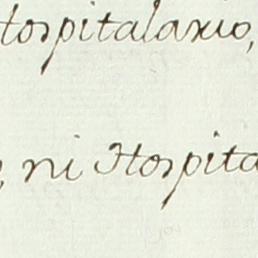 Hospitalario,
, ni Hospita